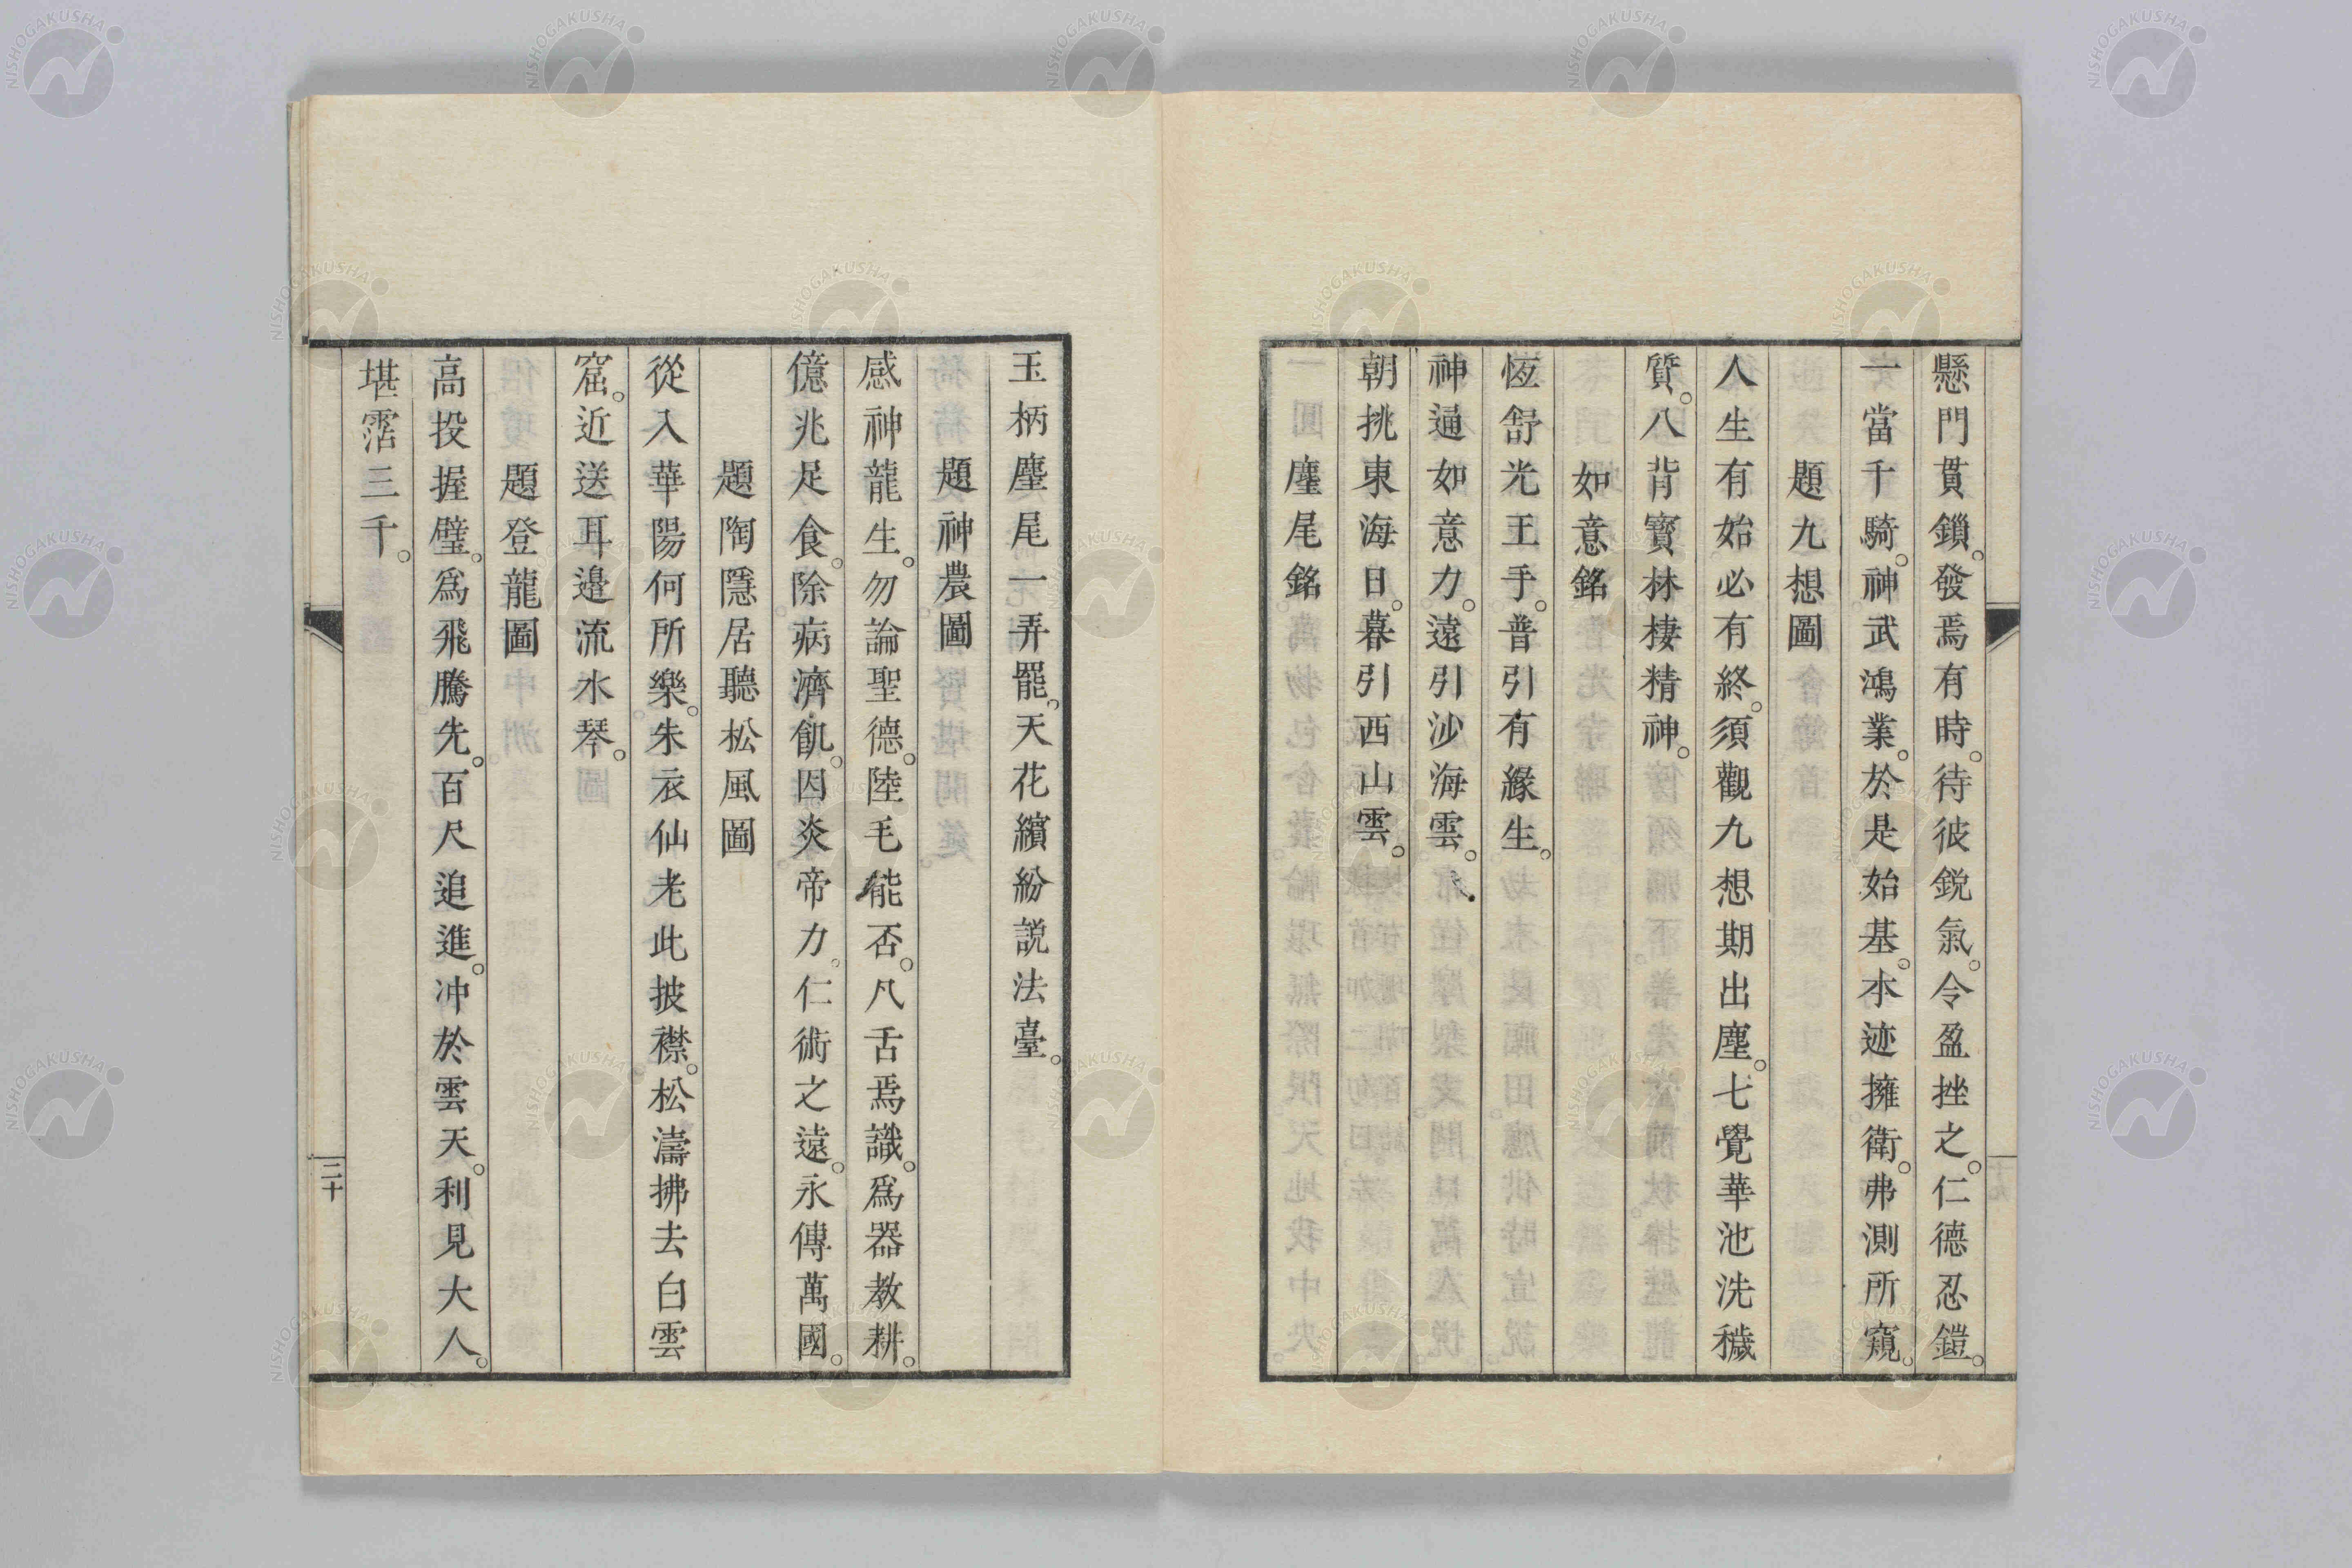 懸門貫鎖。發焉有時。待彼鋭氣。令盈挫之。仁德忍鎧。
一當千騎。神武鴻業。於是始基。本迹擁衛。弗測所窺。
題九想圖
人生有始必有終。須觀九想期出塵。七覺華池洗穢
質。八背寶林棲精神。
如意銘
恆舒光王手。普引有緣生。
神通如意力。遠引沙海雲。
朝挑東海日。暮引西山雲。
麈尾銘
玉柄麈尾一弄罷。天花繽紛説法臺。
題神農圖
感神龍生。勿論聖德。陸毛能否。凡舌焉識。爲器教耕。
億兆足食。除病濟飢。因炎帝力。仁術之遠。永傳萬國。
題陶隱居聽松風圖
從入華陽何所樂。朱衣仙老此披襟。松濤拂去白雲
窟。近送耳邊流水琴。
題登龍圖
高投握璧。爲飛騰先。百尺追進。冲於雲天。利見大人。
堪霑三千。
三十
NISHOGAKUSHA